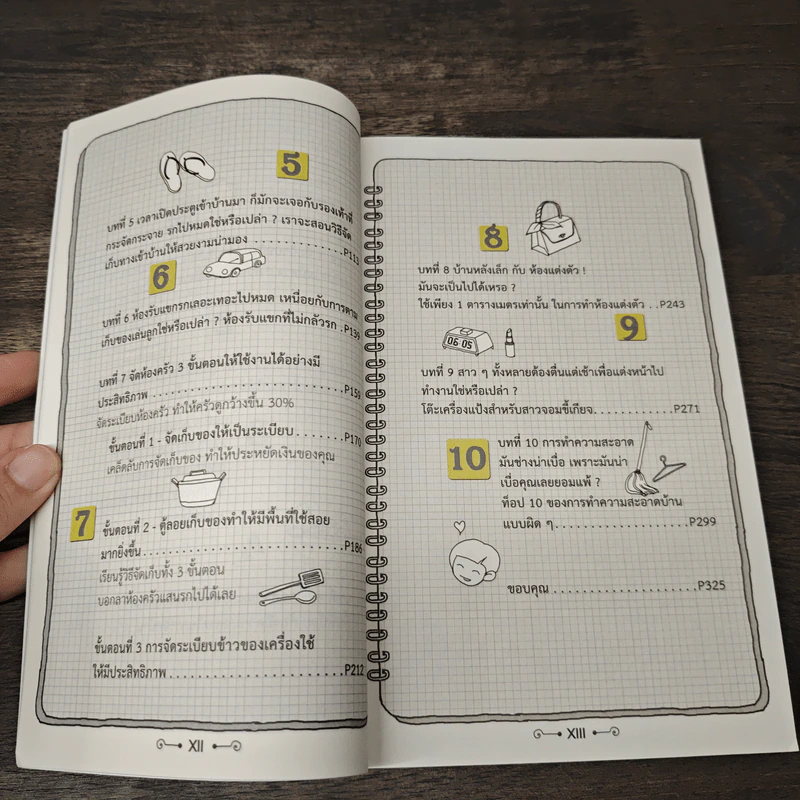 5
บทที่ 5 เวลาเปิดประตูเข้าบ้านมา ก็มักจะเจอกับรองเท้าที่
กระจัดกระจาย รกไปหมดใช่หรือเปล่า ? เราจะสอนวิธีจัด
เก็บทางเข้าบ้านให้สวยงามน่ามอง . . . . . . . . . . . . . . . .P113
6
บทที่ 6 ห้องรับแขกรกเลอะเทอะไปหมด เหนื่อยกับการตาม
เก็บของเล่นลูกใช่หรือเปล่า ? ห้องรับแขกที่ไม่กลัวรก .P139
บทที่ 7 จัดห้องครัว 3 ขั้นตอนให้ใช้งานได้อย่างมี
ประสิทธิภาพ . . . . . . . . . . . . . . . . . . . . . . . . . . . .P159
จัดระเบียบห้องครัว ทำให้ครัวดูกว้างขึ้น 30%
ขั้นตอนที่ 1 - จัดเก็บของให้เป็นระเบียบ . . . . . . . .P170
เคล็ดลับการจัดเก็บของ ทำให้ประหยัดเงินของคุณ
7
ขั้นตอนที่ 2 - ตู้ลอยเก็บของทำให้มีพื้นที่ใช้สอย
มากยิ่งขึ้น . . . . . . . . . . . . . . . . . . . . . . . . . . . . .P186
เรียนรู้วิธีจัดเก็บทั้ง 3 ขั้นตอน
บอกลาห้องครัวแสนรกไปได้เลย
ขั้นตอนที่ 3 การจัดระเบียบข้าวของเครื่องใช้
ให้มีประสิทธิภาพ . . . . . . . . . . . . . . . . . . . . . . . .P212
XII
8
บทที่ 8 บ้านหลังเล็ก กับ ห้องแต่งตัว !
มันจะเป็นไปได้เหรอ ?
ใช้เพียง 1 ตารางเมตรเท่านั้น ในการทำห้องแต่งตัว . .P243
9
06:05
บทที่ 9 สาว ๆ ทั้งหลายต้องตื่นแต่เช้าเพื่อแต่งหน้าไป
ทำงานใช่หรือเปล่า ?
โต๊ะเครื่องแป้งสำหรับสาวจอมขี้เกียจ. . . . . . . . . . . .P271
10
บทที่ 10 การทำความสะอาด
มันช่างน่าเบื่อ เพราะมันน่า
เบื่อคุณเลยยอมแพ้ ?
ท็อป 10 ของการทำความสะอาดบ้าน
แบบผิด ๆ . . . . . . . . . . . . . . . . . . .P299
ขอบคุณ . . . . . . . . . . . . . . . . . . . . .P325
XIII